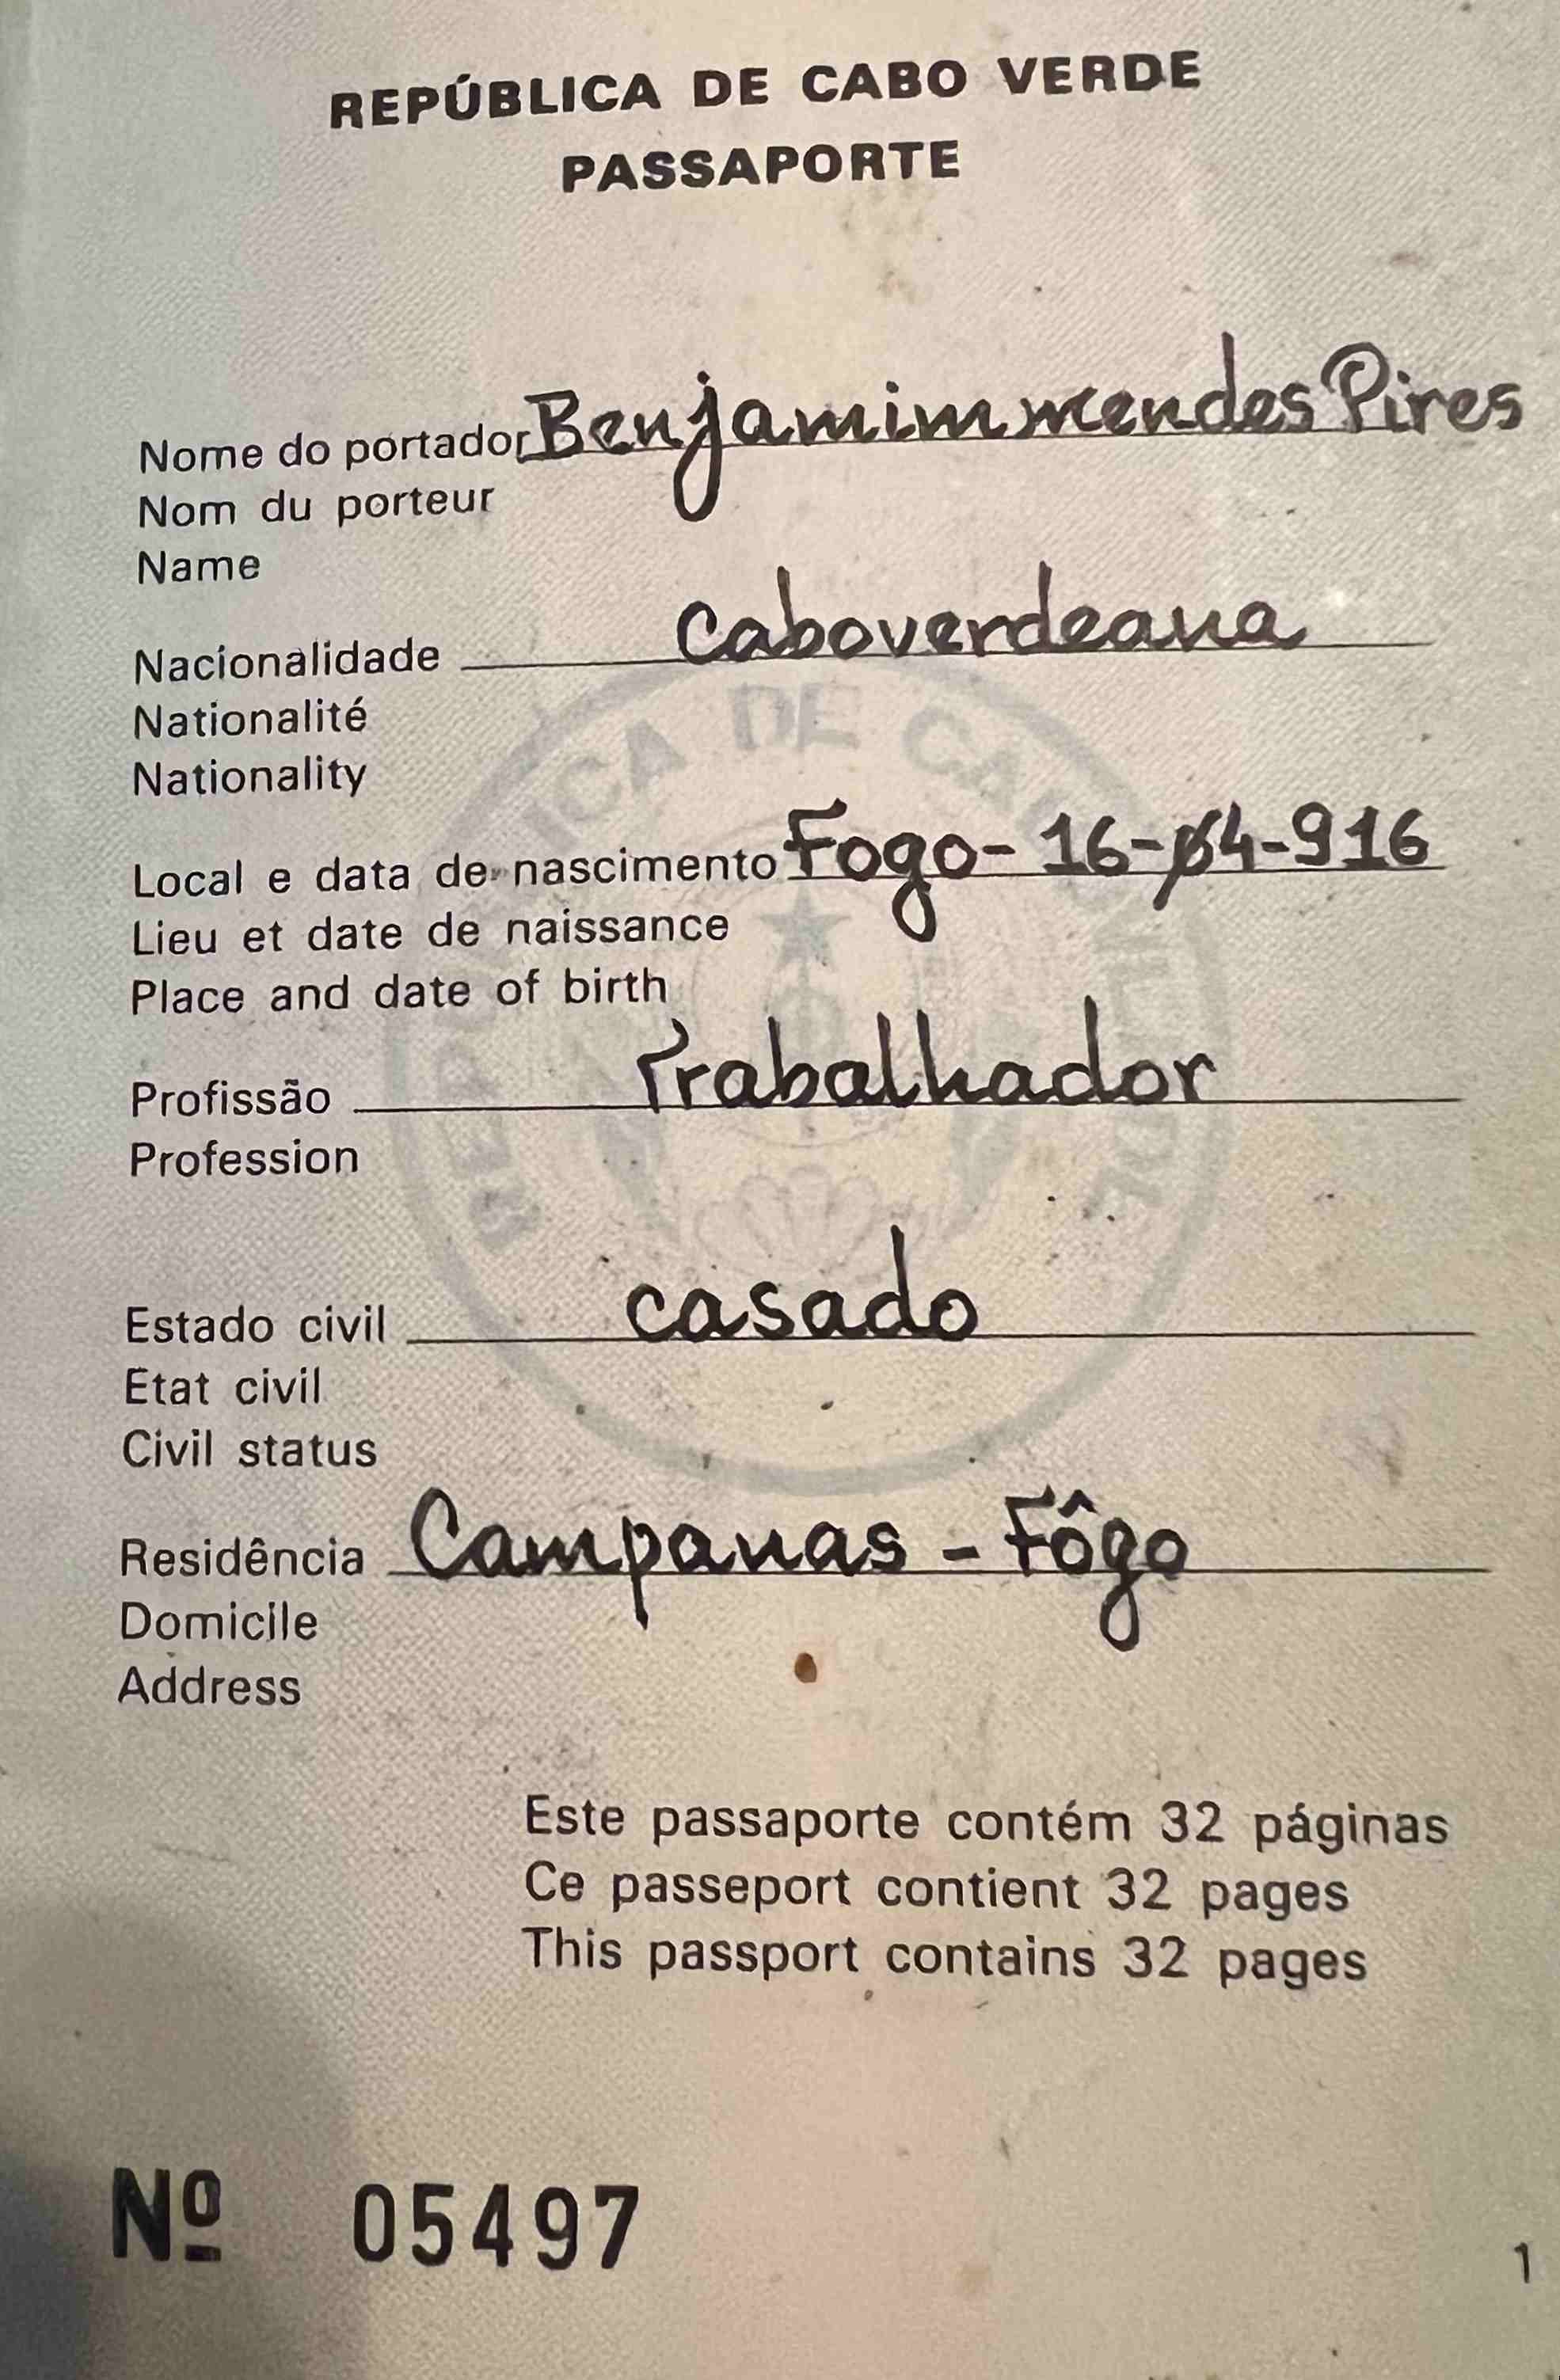 REPÚBLICA DE CABO VERDE
PASSAPORTE
Nome do portador Benjamim mendes Pires
Nom du porteur
Name
Nacionalidade Caboverdeana
Nationalité
Nationality
Local e data de nascimento Fogo- 16-04-916
Lieu et date de naissance
Place and date of birth
Profissão Trabalhador
Profession
Estado civil casado
Etat civil
Civil status
Residência Campanas - Fôgo
Domicile
Address
Este passaporte contém 32 páginas
Ce passeport contient 32 pages
This passport contains 32 pages
Nº 05497
1